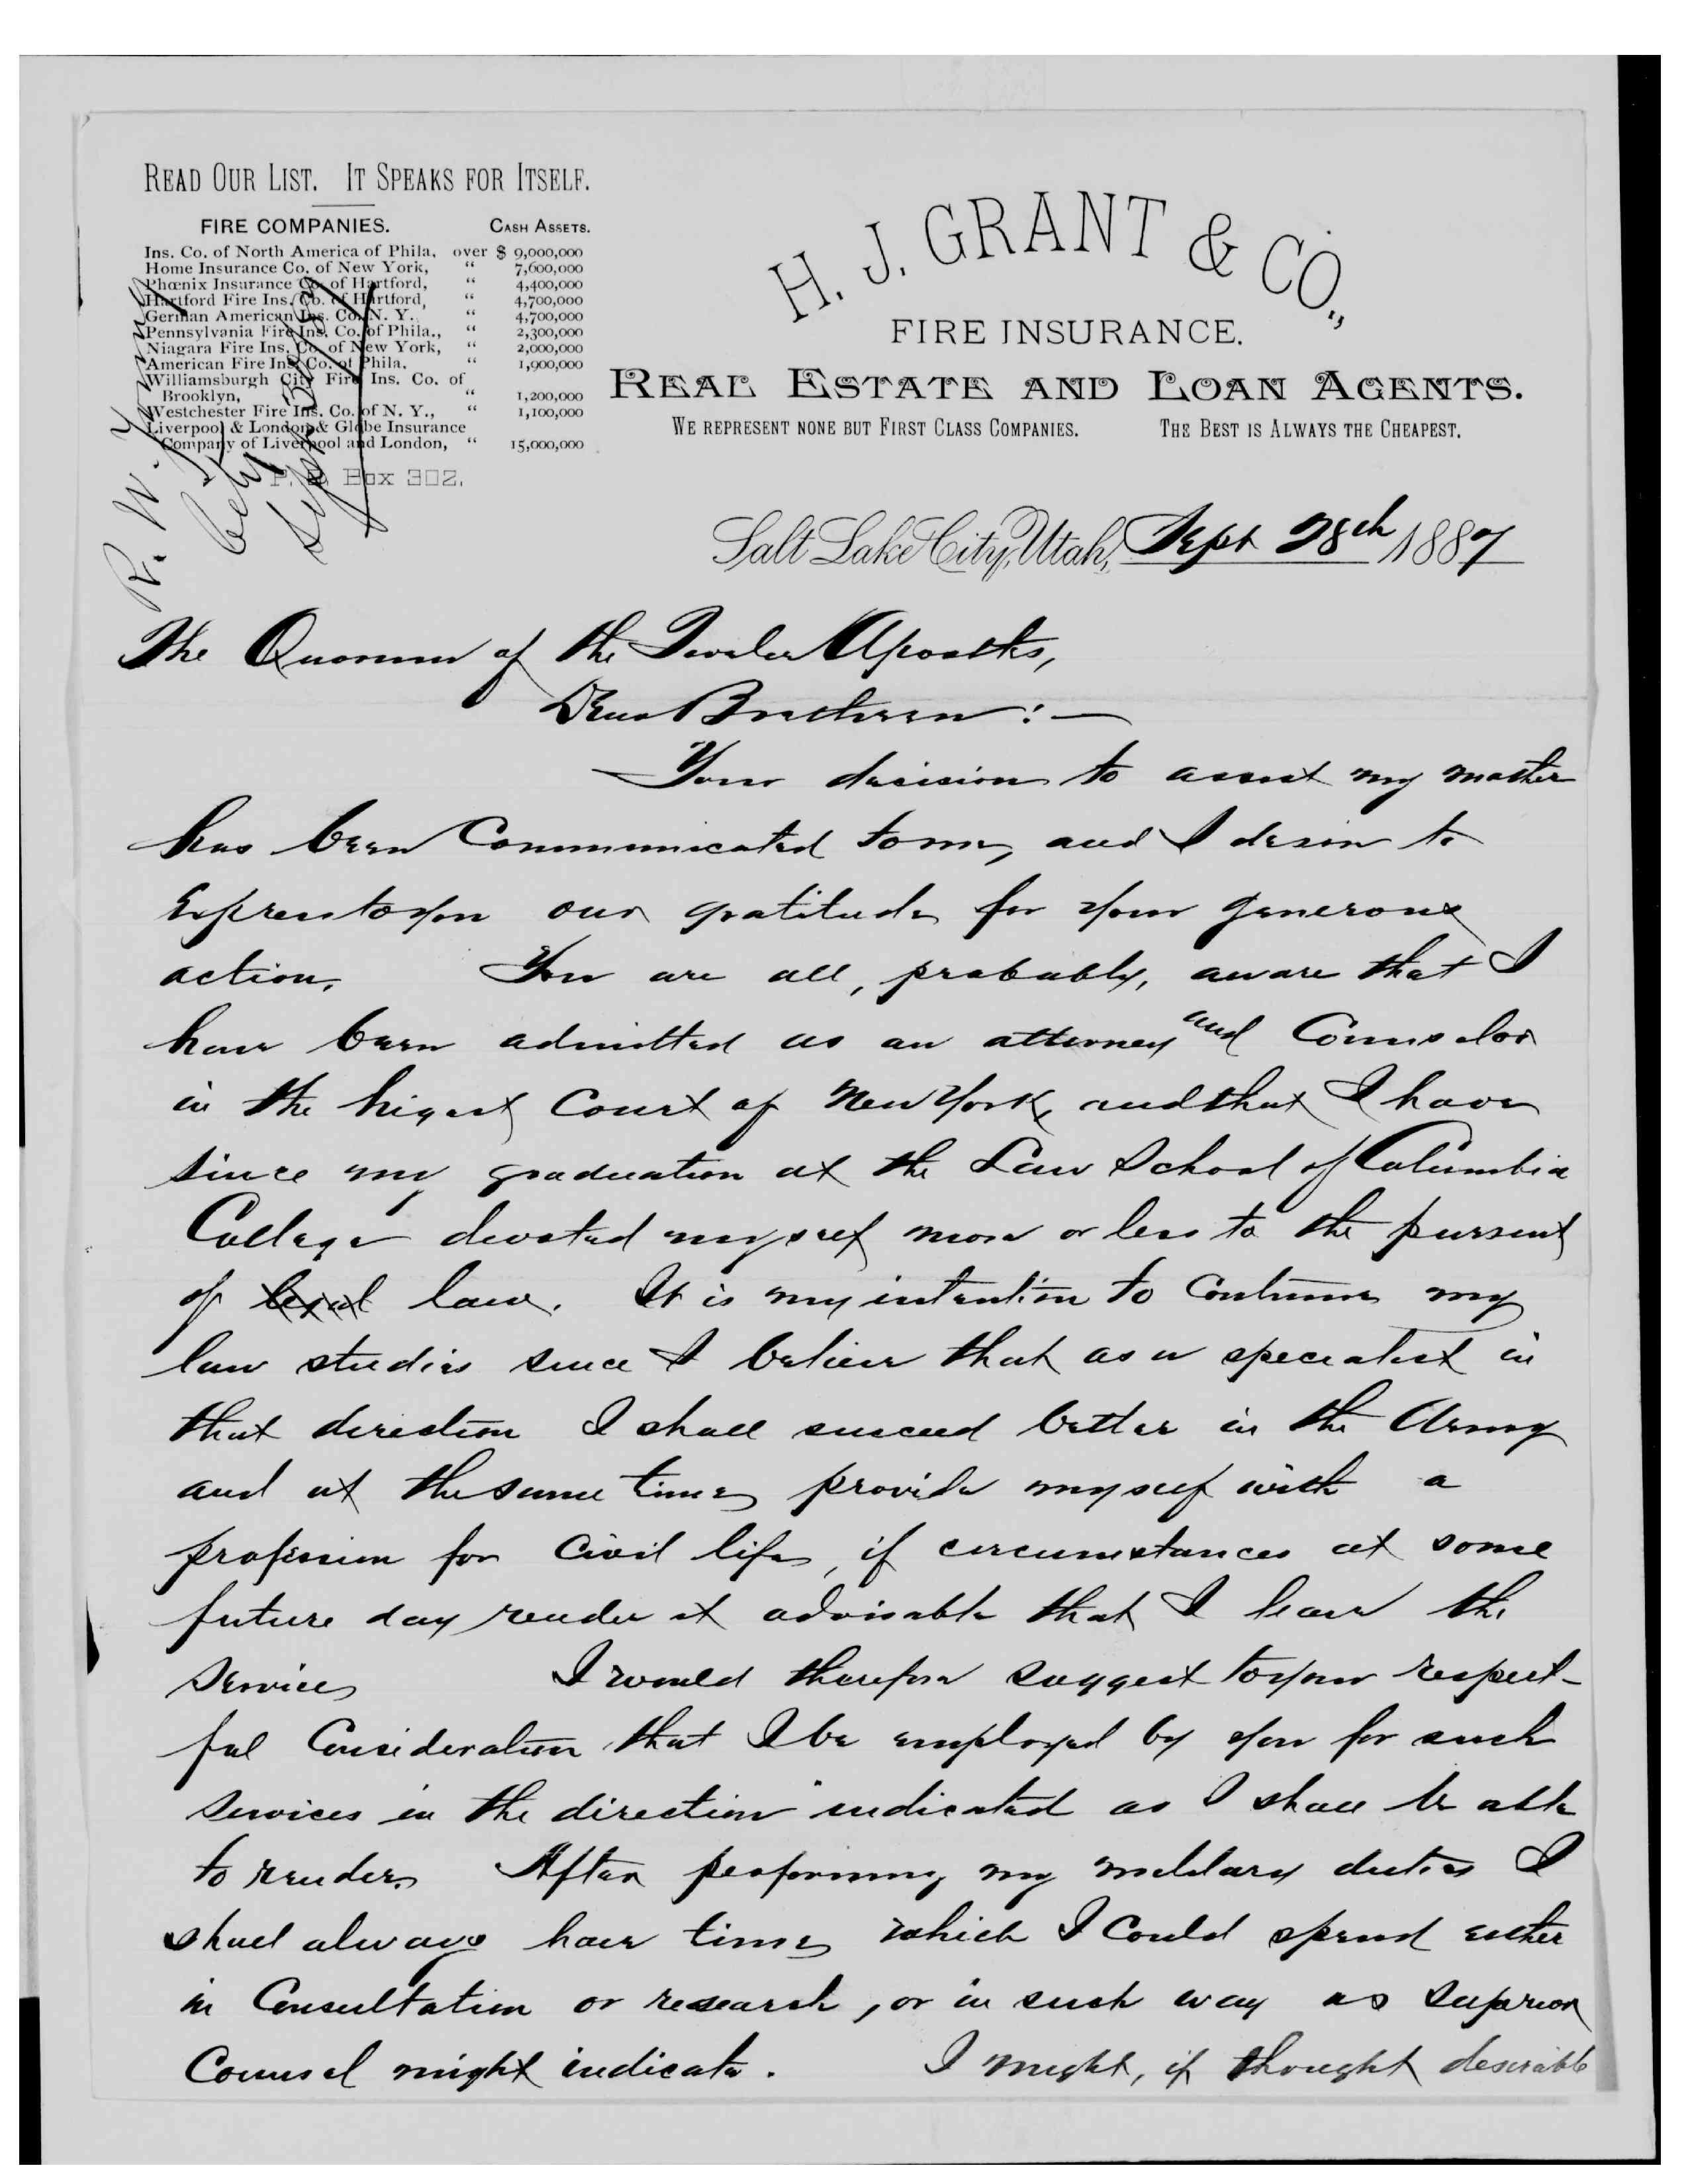 READ OUR LIST. IT SPEAKS FOR ITSELF.
FIRE COMPANIES. CASH ASSETS.
Ins. Co. of North America of Phila, over $ 9,000,000
Home Insurance Co. of New York, “ 7,600,000
Phœnix Insurance Co. of Hartford, “ 4,400,000
Hartford Fire Ins. Co. of Hartford, “ 4,700,000
German American Ins. Co. N. Y. “ 4,700,000
Pennsylvania Fire Ins. Co. of Phila., “ 2,300,000
Niagara Fire Ins. Co. of New York, “ 2,000,000
American Fire Ins. Co. of Phila. “ 1,900,000
Williamsburgh City Fire Ins. Co. of
Brooklyn, “ 1,200,000
Westchester Fire Ins. Co. of N. Y., “ 1,100,000
Liverpool & London & Globe Insurance
Company of Liverpool and London, “ 15,000,000
P. O. Box 302.
R. W. Young
City
Sept 28/87
H. J. GRANT & CO.,
FIRE INSURANCE.
REAL ESTATE AND LOAN AGENTS.
WE REPRESENT NONE BUT FIRST CLASS COMPANIES. THE BEST IS ALWAYS THE CHEAPEST.
Salt Lake City, Utah, Sept 28th 1887
The Quorum of the Twelve Apostles,
Dear Brethren:—
Your decision to assist my mother
has been communicated to me, and I desire to
express to you our gratitude for your generous
action. You are all, probably, aware that I
have been admitted as an attorney and Counselor
in the higest Court of New York, and that I have
since my graduation at the Law School of Columbia
College devoted myself more or less to the pursuit
of legal law. It is my intention to continue my
law studies since I believe that as a specialist in
that direction I shall succeed better in the Army
and at the same time provide myself with a
profession for civil life, if circumstances at some
future day render it advisable that I leave the
service I would therefore suggest to your respect-
ful Consideration that I be employed by you for such
services in the direction indicated as I shall be able
to render. After performing my military duties I
shall always have time which I could spend either
in Consultation or research, or in such way as superior
Counsel might indicate. I might, if thought desirable